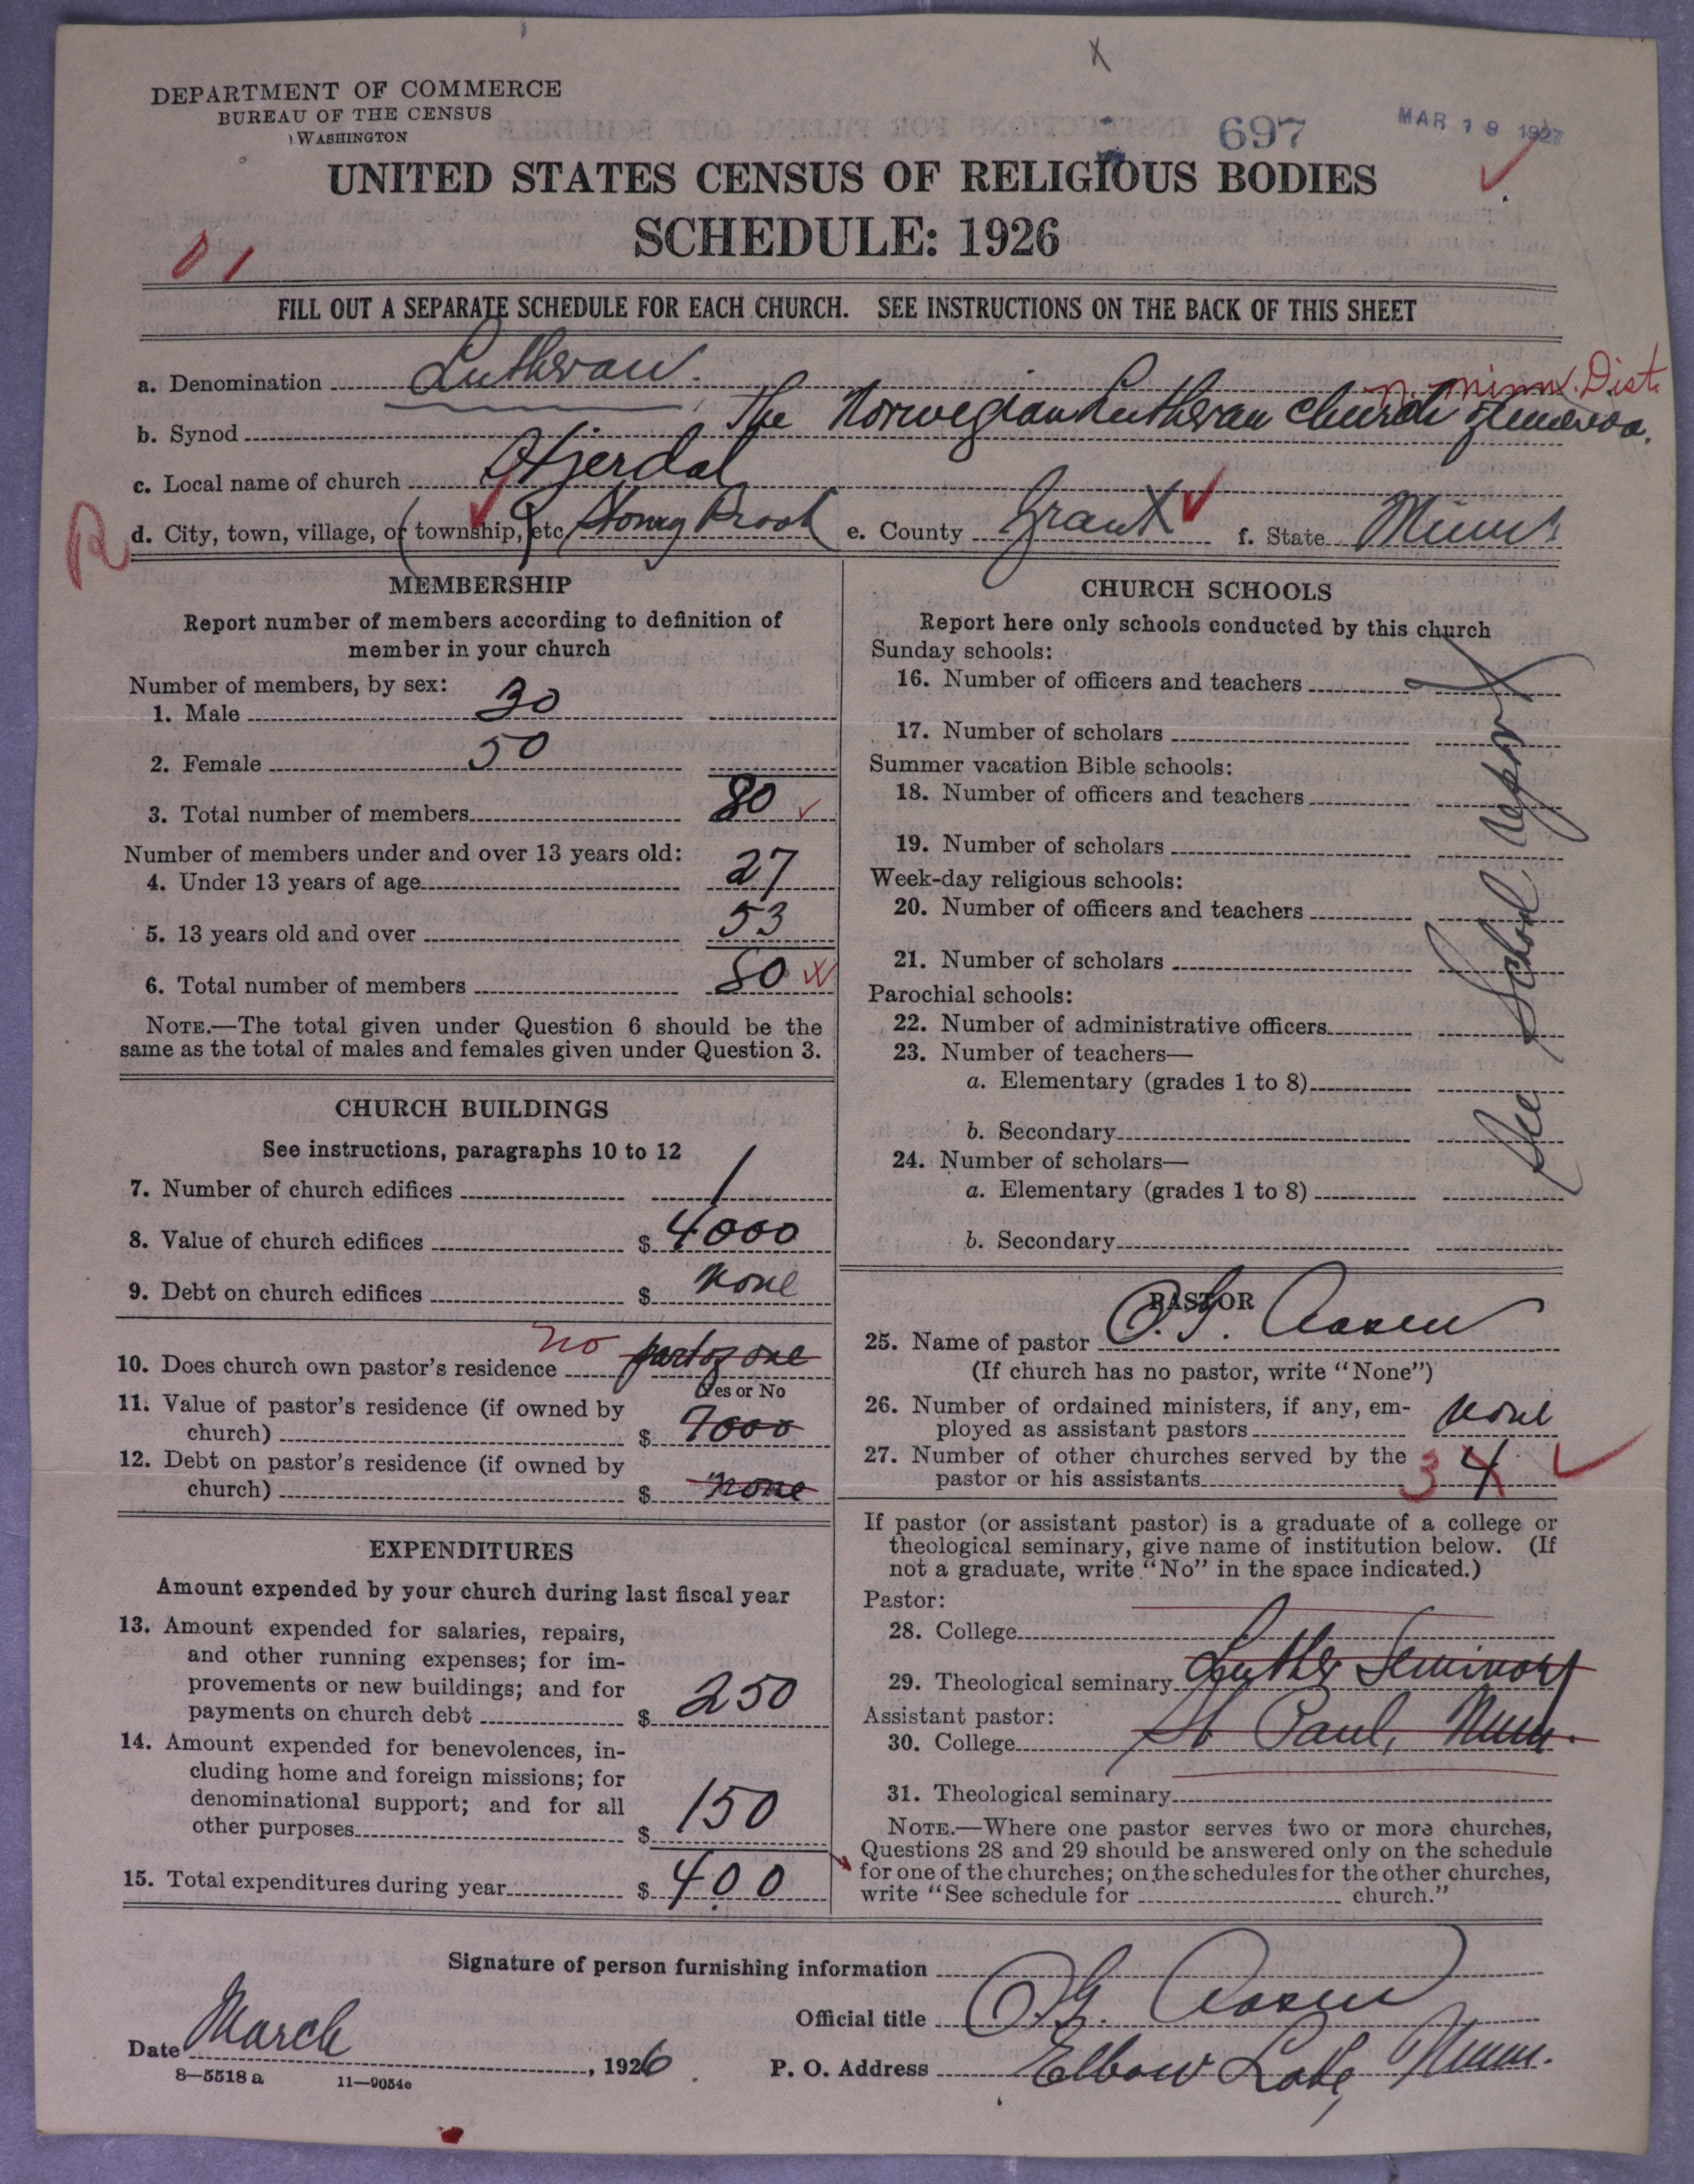 X
DEPARTMENT OF COMMERCE
BUREAU OF THE CENSUS
WASHINGTON
697
MAR 19 1927
UNITED STATES CENSUS OF RELIGIOUS BODIES
SCHEDULE: 1926
01
FILL OUT A SEPARATE SCHEDULE FOR EACH CHURCH. SEE INSTRUCTIONS ON THE BACK OF THIS SHEET
a. Denomination Lutheran.
N. Minn. Dist.
b. Synod The Norwegian Lutheran Church of America.
c. Local name of church Hjerdal
R
d. City, town, village, or (township,) etc e. County Grant f. State Minn
MEMBERSHIP
Report number of members according to definition of
member in your church
Number of members, by sex:
1. Male 30
2. Female 50
3. Total number of members 80
Number of members under and over 13 years old:
4. Under 13 years of age 27
5. 13 years old and over 53
6. Total number of members 80
NOTE.—The total given under Question 6 should be the
same as the total of males and females given under Question 3.
CHURCH BUILDINGS
See instructions, paragraphs 10 to 12
7. Number of church edifices 1
8. Value of church edifices $ 4000
9. Debt on church edifices $ none
10. Does church own pastor's residence no part of one
Yes or No
11. Value of pastor's residence (if owned by
church) $ 7000
12. Debt on pastor's residence (if owned by
church) $ none
EXPENDITURES
Amount expended by your church during last fiscal year
13. Amount expended for salaries, repairs,
and other running expenses; for im-
provements or new buildings; and for
payments on church debt $ 250
14. Amount expended for benevolences, in-
cluding home and foreign missions; for
denominational support; and for all
other purposes $ 150
15. Total expenditures during year $ 400
CHURCH SCHOOLS
Report here only schools conducted by this church
Sunday schools:
16. Number of officers and teachers
17. Number of scholars
Summer vacation Bible schools:
18. Number of officers and teachers
19. Number of scholars
Week-day religious schools:
20. Number of officers and teachers
21. Number of scholars
Parochial schools:
22. Number of administrative officers
23. Number of teachers—
a. Elementary (grades 1 to 8)
b. Secondary
24. Number of scholars—
a. Elementary (grades 1 to 8)
b. Secondary
See School report
PASTOR
25. Name of pastor O. G. Aasen
(If church has no pastor, write "None")
26. Number of ordained ministers, if any, em-
ployed as assistant pastors none
27. Number of other churches served by the
pastor or his assistants 3 4
If pastor (or assistant pastor) is a graduate of a college or
theological seminary, give name of institution below. (If
not a graduate, write "No" in the space indicated.)
Pastor:
28. College
29. Theological seminary Luther Seminary
Assistant pastor: St Paul, Minn.
30. College
31. Theological seminary
NOTE.—Where one pastor serves two or more churches,
Questions 28 and 29 should be answered only on the schedule
for one of the churches; on the schedules for the other churches,
write "See schedule for church."
Signature of person furnishing information
Official title O. G. Aasen
Date March, 1926
P. O. Address Elbow Lake, Minn.
8—5518 a 11—9054c